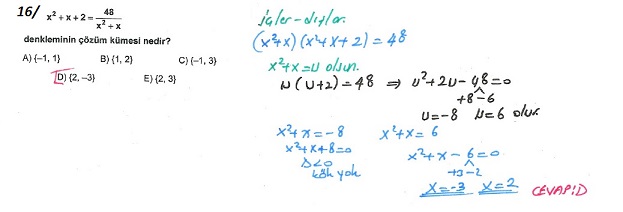 16/ x² + x + 2 = 48 / x² + x
denkleminin çözüm kümesi nedir?
A) {–1, 1} B) {1, 2} C) {–1, 3}
D) {2, –3} E) {2, 3}
içler-dışlar.
(x²+x)(x²+x+2) = 48
x²+x=u olsun.
u(u+2)=48 ⇒ u²+2u-48=0
+8 -6
u=-8 u=6 olur
x²+x=-8 x²+x=6
x²+x+8=0
x²+x-6=0
Δ<0
kök yok
+3 -2
x=-3 x=2 CEVAP:D